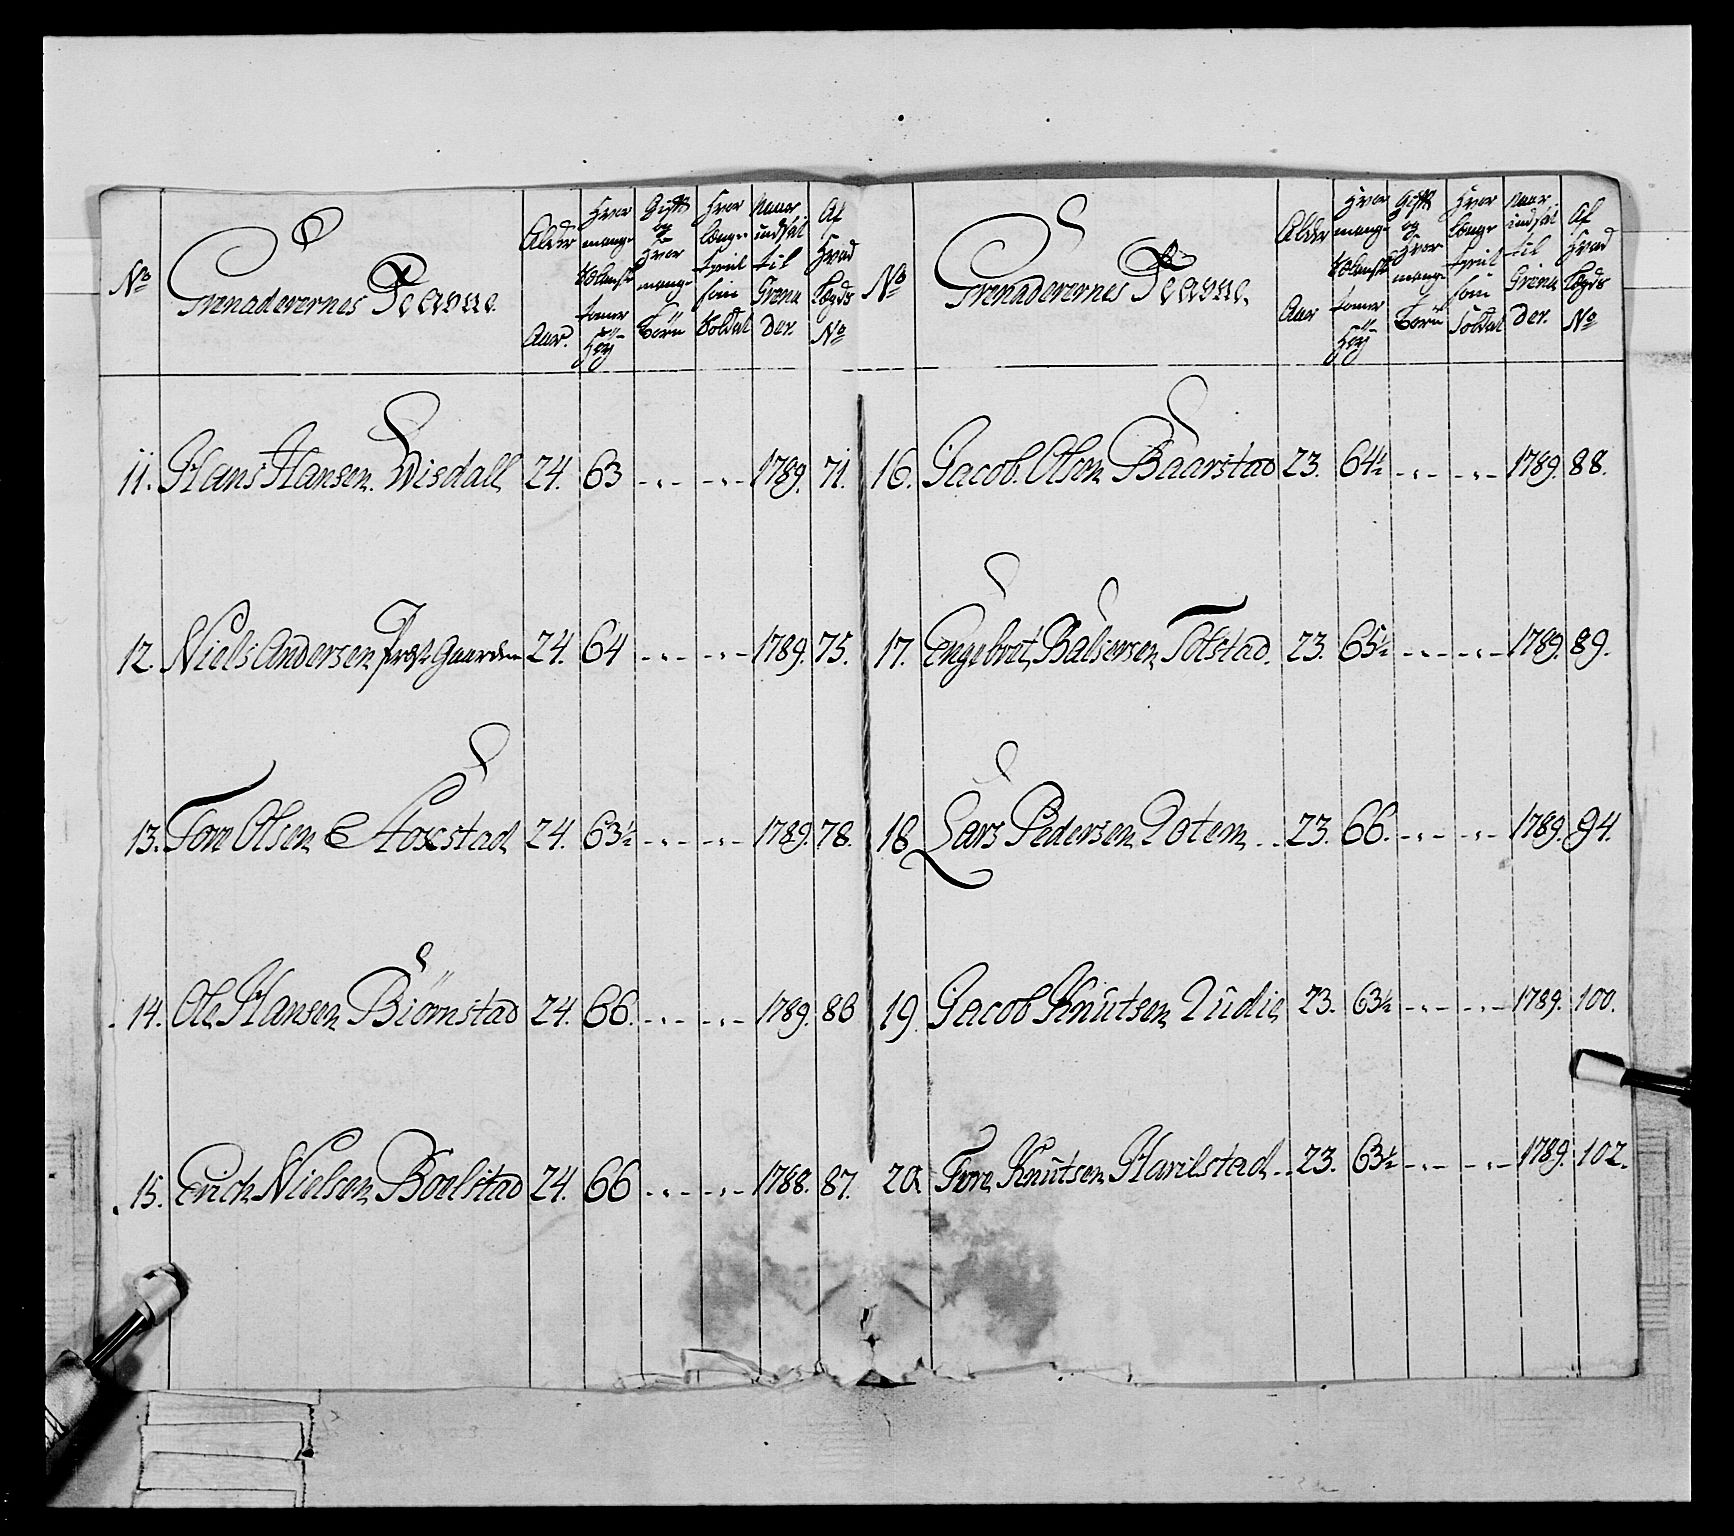 No
Grenaderernes Navne.
Alder Aar.
Hvor mange Sælandske tomer Høy
Gift og Hvor mange Børn
Hvor længe tient som Soldat
Naar indsat til Grena der.
Af Hvad Lægds No
11. Hans Hansen Wisdall 24. 63 -.-.- 1789. 71.
12. Niels Andersen Præst Gaarden 24. 64 -.-.- 1789. 75.
13. Tore Olsen Stoxstad 24. 63½ -.-.- 1789. 78.
14. Ole Hansen Biørnstad 24. 66. -.-.- 1789. 86
15. Erich Nielsen Boelstad 24. 66 -.-.- 1788. 87.
No
Grenaderernes Navne.
Alder Aar
Hvor mange Sælandske tomer Høy
Gift og Hvor mange Børn
Hvor længe tient som Soldat
Naar indsat til Grena der.
Af Hvad Lægds No
16. Jacob Olsen Baarstad 23. 64½ -.-.- 1789. 88.
17. Engebret Balsersen Tolstad. 23. 65½ -.-.- 1789. 89.
18 Lars Pedersen Totem 23. 66. -.-.- 1789. 94.
19. Jacob Knutsen 23. 63½ -.-.- 1789. 100.
20. Tore Knutsen Harilstad 23. 63½ -.-.- 1789. 102.